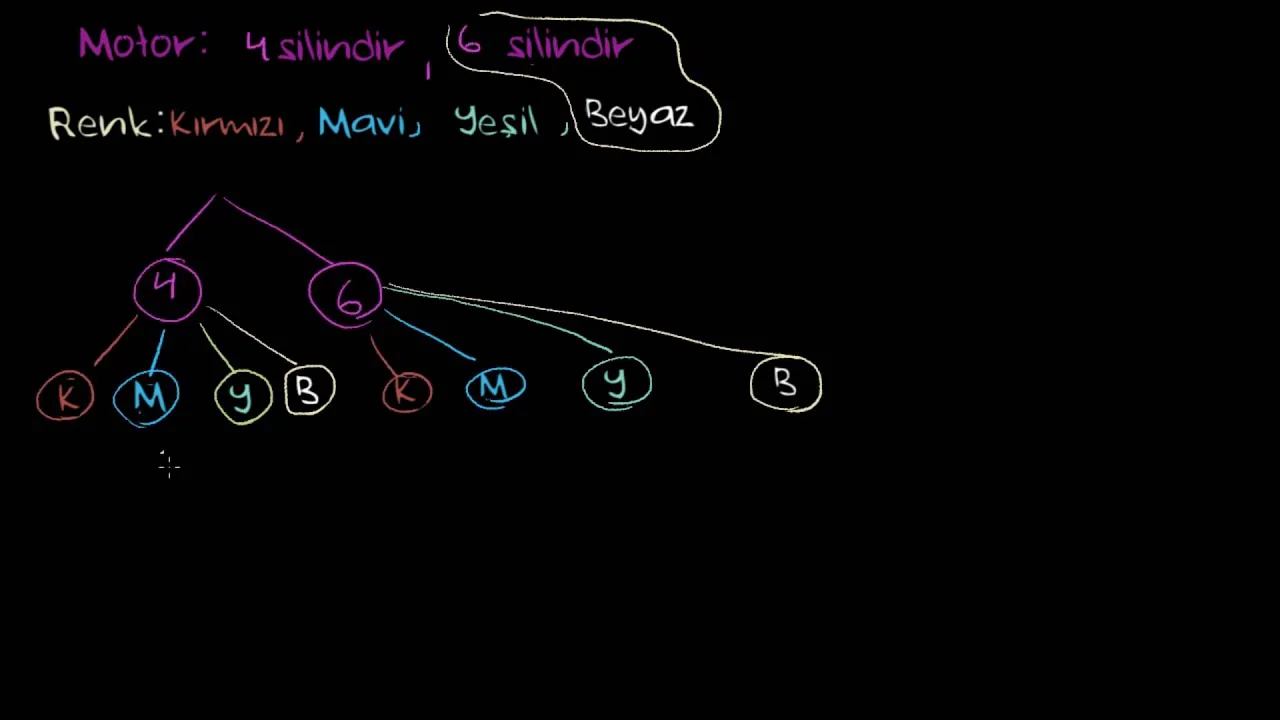 Motor: 4 silindir, 6 silindir
Renk: Kırmızı, Mavi, Yeşil, Beyaz
4 6
K M Y B K M Y B